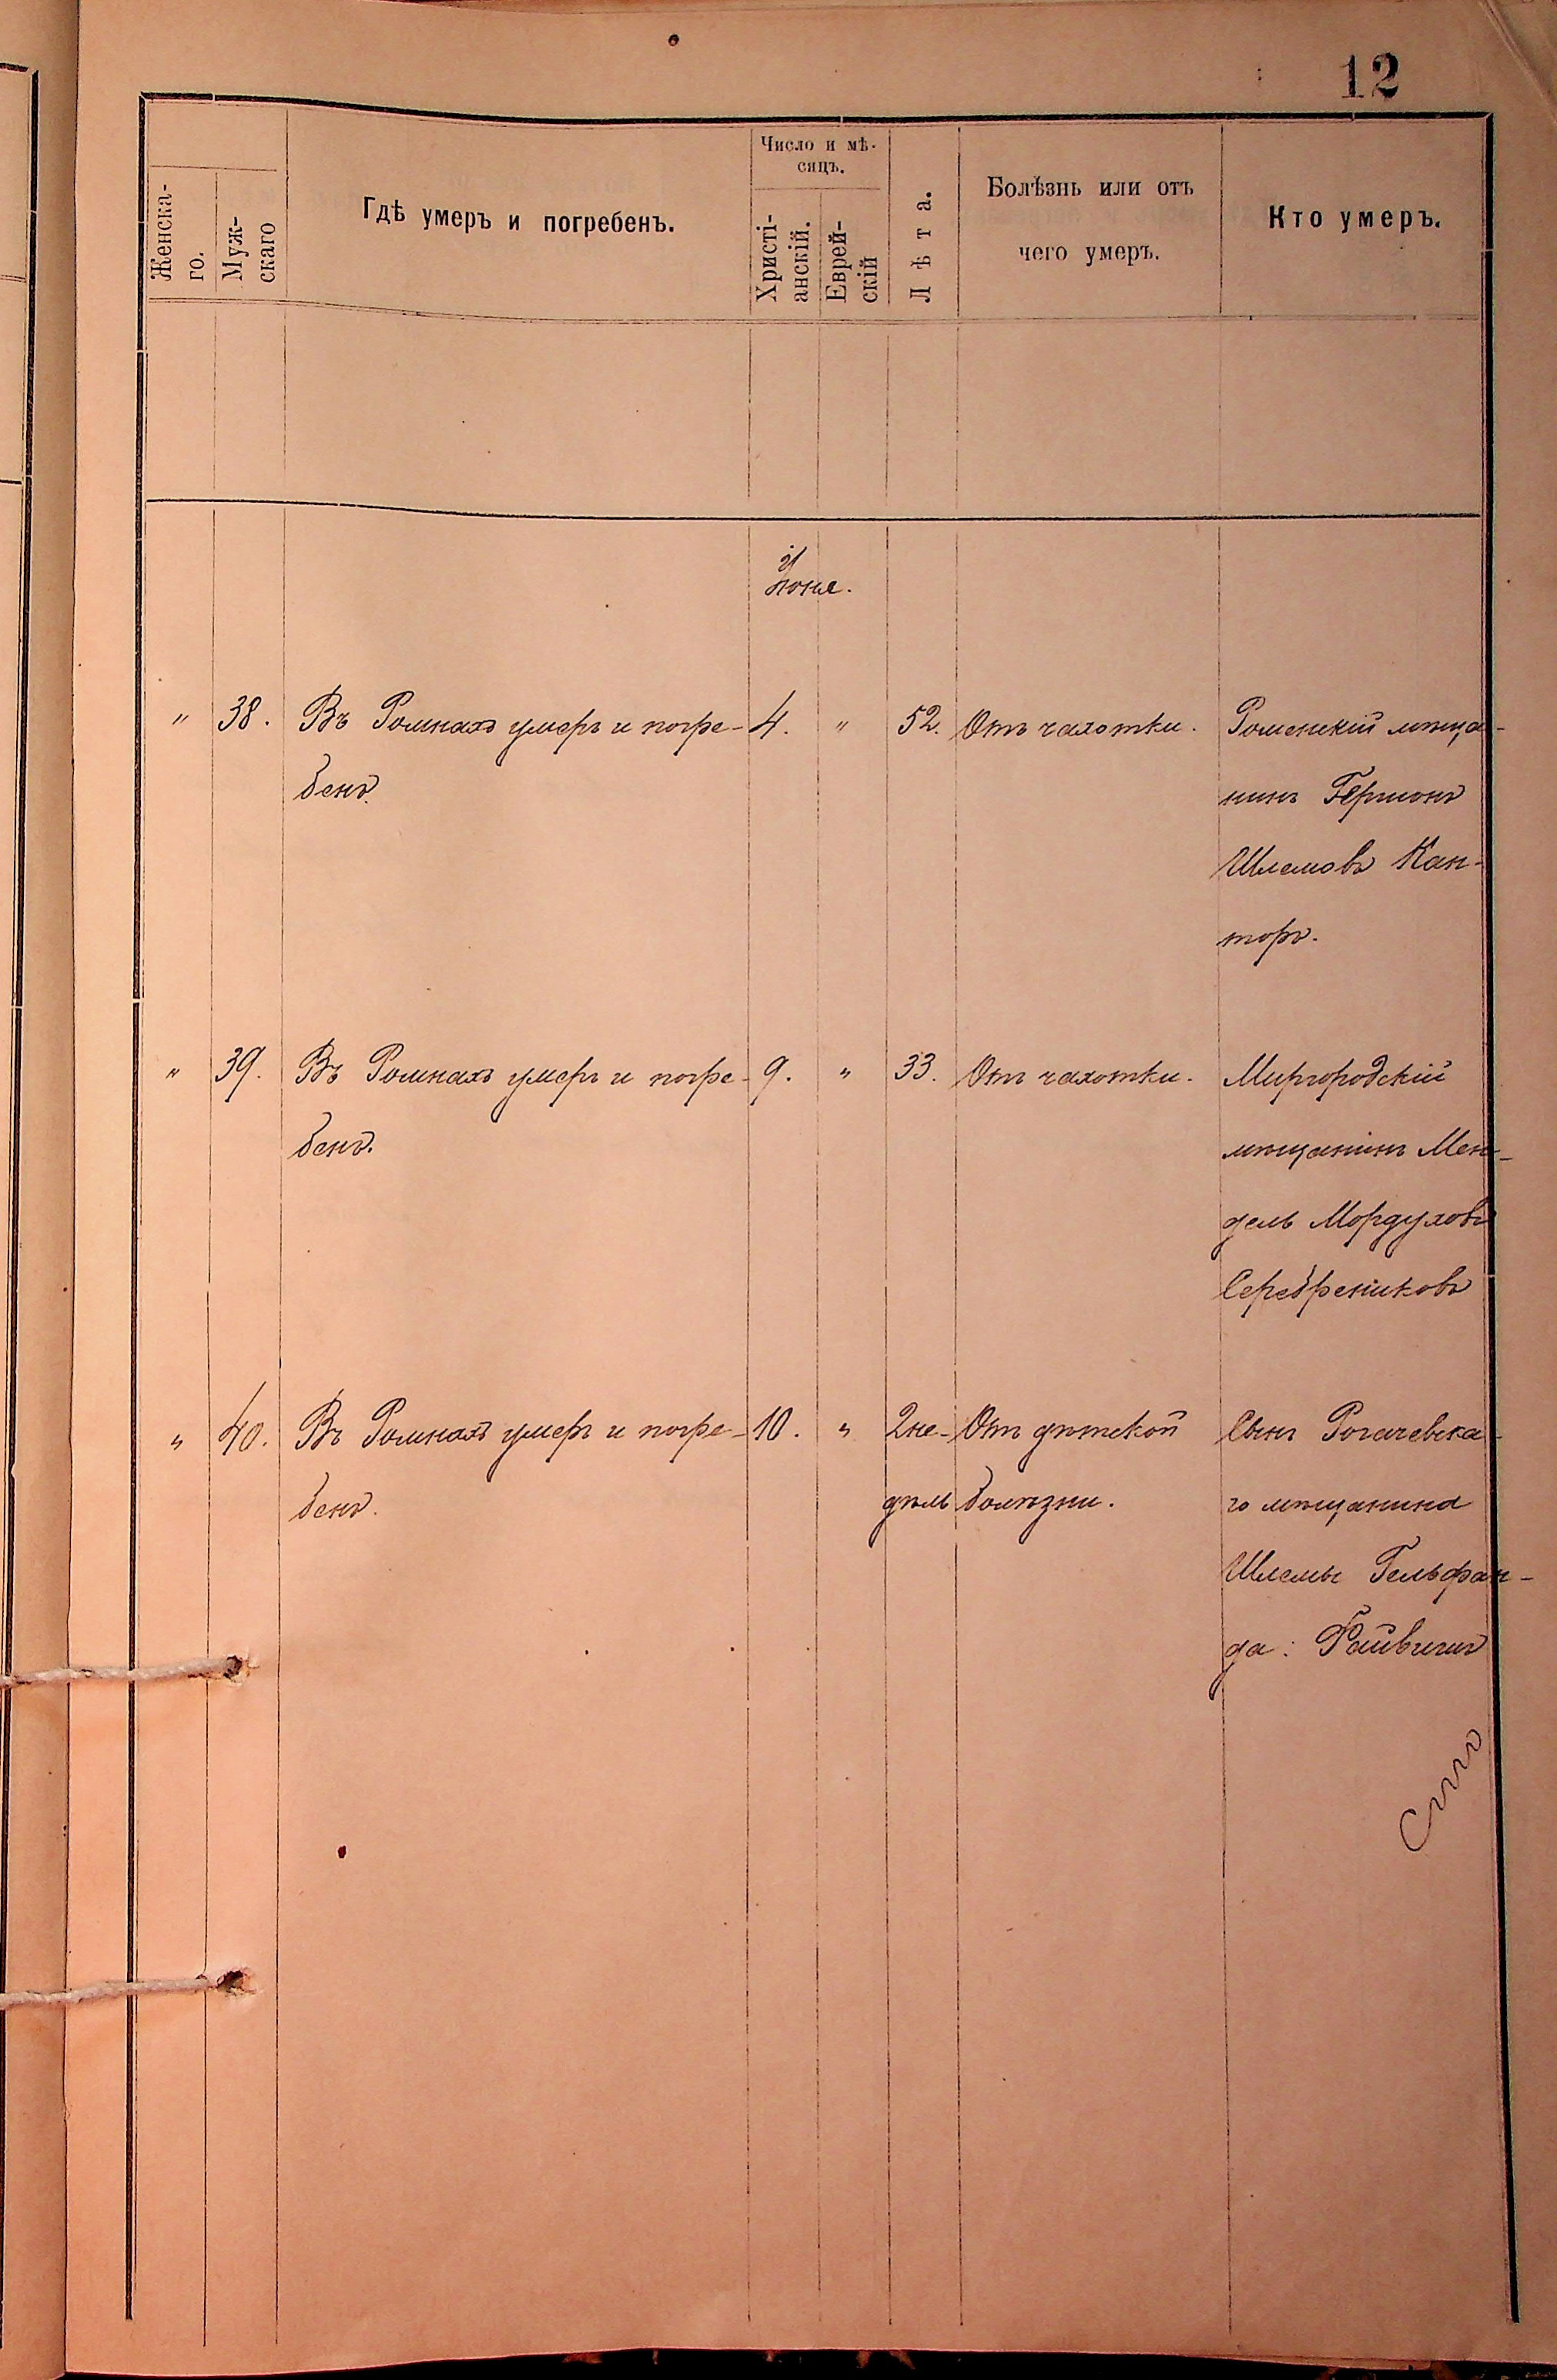 12
Женска-
го.
Муж-
скаго
Гдѣ умеръ и погребенъ.
Число и мѣ-
сяцъ.
Христі-
анскій.
Еврей-
скій
Лѣта.
Болѣзнь или отъ
чего умеръ.
Кто умеръ.
Іюня.
" 38. Въ Ромнахъ умеръ и погре- 4. " 52. Отъ чахотки. Роменскій мѣща-
бенъ. нинъ Гершонъ
Шлемовъ Кан-
торъ.
" 39. Въ Ромнахъ умеръ и погре- 9. " 33. Отъ чахотки. Миргородскій
бенъ. мѣщанинъ Мен-
дель Мордуховъ
Серебрениковъ
" 40. Въ Ромнахъ умеръ и погре- 10. " 2 не- Отъ дѣтской Сынъ Рогачевска-
бенъ. дѣль болѣзни. го мѣщанина
Шлемы Гельфан-
да: